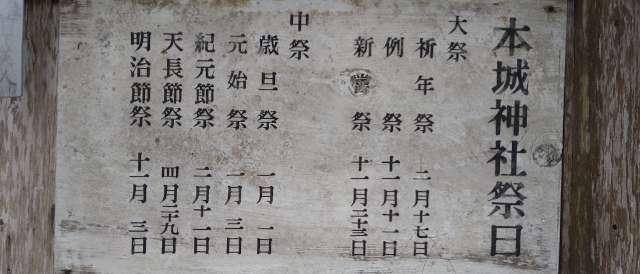 本城神社祭日
大祭
祈年祭 二月十七日
例祭 十一月十一日
新嘗祭 十一月二十三日
中祭
歳旦祭 一月一日
元始祭 一月三日
紀元節祭 二月十一日
天長節祭 四月二十九日
明治節祭 十一月三日